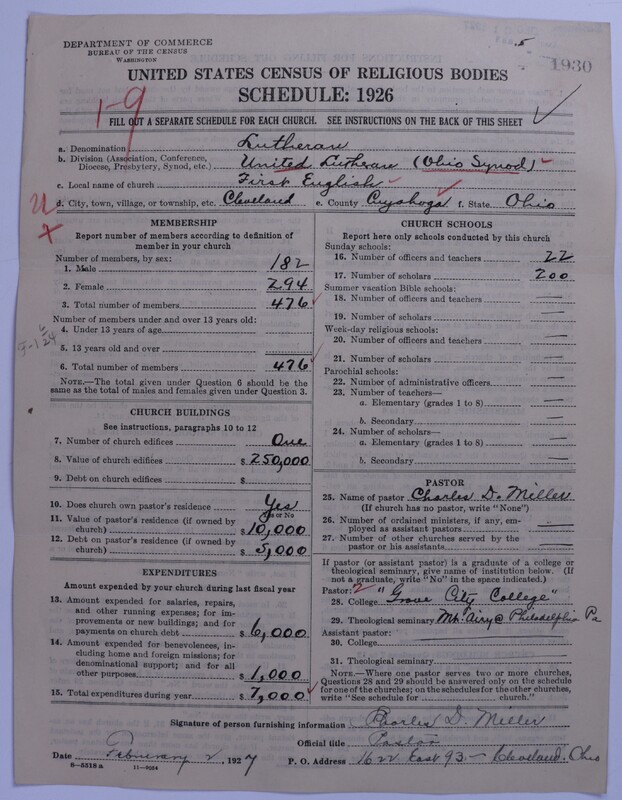 DEPARTMENT OF COMMERCE
BUREAU OF THE CENSUS
WASHINGTON
1930
UNITED STATES CENSUS OF RELIGIOUS BODIES
SCHEDULE: 1926
1-9
FILL OUT A SEPARATE SCHEDULE FOR EACH CHURCH. SEE INSTRUCTIONS ON THE BACK OF THIS SHEET
a. Denomination Lutheran
b. Division (Association, Conference, Diocese, Presbytery, Synod, etc.) United Lutheran (Ohio Synod)
c. Local name of church First English
d. City, town, village, or township, etc. Cleveland e. County Cuyahoga f. State Ohio
MEMBERSHIP
Report number of members according to definition of
member in your church
Number of members, by sex:
1. Male 182
2. Female 294
3. Total number of members 476
Number of members under and over 13 years old:
4. Under 13 years of age
5. 13 years old and over
6. Total number of members 476
NOTE.—The total given under Question 6 should be
same as the total of males and females given under Question 3.
CHURCH BUILDINGS
See instructions, paragraphs 10 to 12
7. Number of church edifices One
8. Value of church edifices $250,000
9. Debt on church edifices $
10. Does church own pastor's residence Yes
Yes or No
11. Value of pastor's residence (if owned by
church) $10,000
12. Debt on pastor's residence (if owned by
church) $5,000
EXPENDITURES
Amount expended by your church during last fiscal year
13. Amount expended for salaries, repairs,
and other running expenses; for im-
provements or new buildings; and for
payments on church debt $6,000
14. Amount expended for benevolences, in-
cluding home and foreign missions; for
denominational support; and for all
other purposes $1,000
15. Total expenditures during year $7,000
CHURCH SCHOOLS
Report here only schools conducted by this church
Sunday schools:
16. Number of officers and teachers 22
17. Number of scholars 200
Summer vacation Bible schools:
18. Number of officers and teachers —
19. Number of scholars —
Week-day religious schools:
20. Number of officers and teachers —
21. Number of scholars —
Parochial schools:
22. Number of administrative officers —
23. Number of teachers—
a. Elementary (grades 1 to 8) —
b. Secondary —
24. Number of scholars—
a. Elementary (grades 1 to 8) —
b. Secondary —
PASTOR
25. Name of pastor Charles D. Miller
(If church has no pastor, write "None")
26. Number of ordained ministers, if any, em-
ployed as assistant pastors —
27. Number of other churches served by the
pastor or his assistants —
If pastor (or assistant pastor) is a graduate of a college or
theological seminary, give name of institution below. (If
not a graduate, write "No" in the space indicated.)
Pastor: 2
28. College "Grove City College"
29. Theological seminary Mt. Airy @ Philadelphia Pa
Assistant pastor:
30. College
31. Theological seminary
NOTE.—Where one pastor serves two or more churches,
Questions 28 and 29 should be answered only on the schedule
for one of the churches; on the schedules for the other churches,
write "See schedule for ........ church."
Signature of person furnishing information Charles D. Miller
Official title Pastor
Date February 2, 1927 P. O. Address 1622 East 93 - Cleveland, Ohio
8-5518 a 11-9984